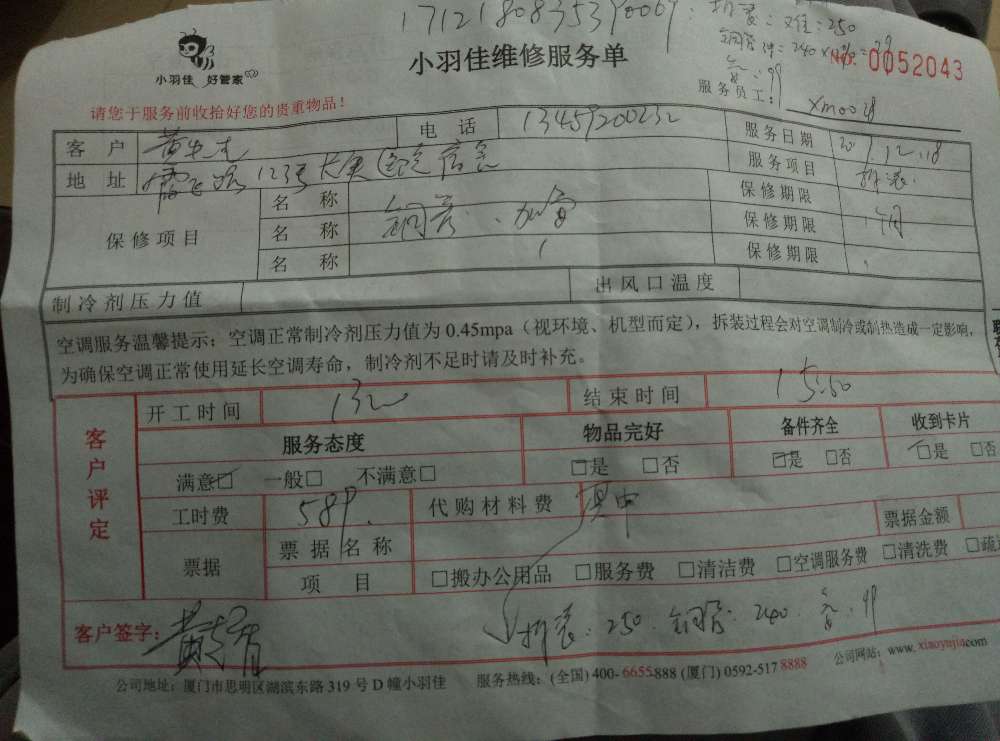 小羽佳 好管家
小羽佳维修服务单
拆装:难:250
NO. 0052043
服务员工: xm0028
请您于服务前收拾好您的贵重物品!
客户 黄先生 电话 服务日期
地址 服务项目 拆装
保修项目 名称 保修期限
名称 铜管、加氟 保修期限
名称 保修期限
制冷剂压力值 出风口温度
空调服务温馨提示:空调正常制冷剂压力值为 0.45mpa(视环境、机型而定),拆装过程会对空调制冷或制热造成一定影响,
为确保空调正常使用延长空调寿命,制冷剂不足时请及时补充。
客户评定
开工时间 结束时间
服务态度 物品完好 备件齐全 收到卡片
满意□ 一般□ 不满意□ □是 □否 □是 □否 □是 □否
工时费 589. 代购材料费 票据金额
票据 票据名称
项目 □搬办公用品 □服务费 □清洁费 □空调服务费 □清洗费
客户签字: 拆装:250.铜管:240.
公司地址:厦门市思明区湖滨东路 319 号 D 幢小羽佳 服务热线:(全国) 400-6655888 (厦门) 0592-517 8888 公司网站:www.xiaoyujia.com